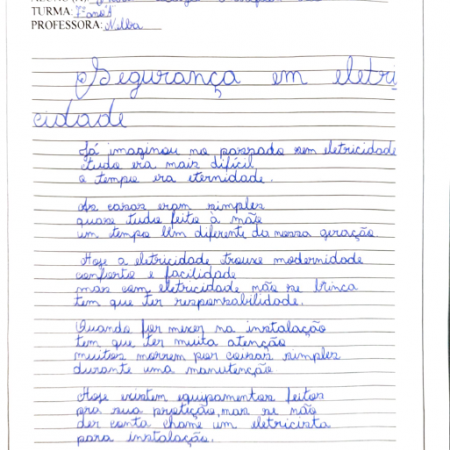 TURMA: 7º ano A
PROFESSORA: Nilba
Segurança em eletri
cidade
Já imaginou no passado sem eletricidade
tudo era mais difícil
o tempo era eternidade.
As casas eram simples
quase tudo feito à mão
um tempo bem diferente da nossa geração
Hoje a eletricidade trouxe modernidade
conforto e facilidade
mas com eletricidade não se brinca
tem que ter responsabilidade.
Quando for mexer na instalação
tem que ter muita atenção
muitos morrem por coisas simples
durante uma manutenção
Hoje existem equipamentos feitos
pra sua proteção, mas se não
der conta chame um eletricista
para instalação.